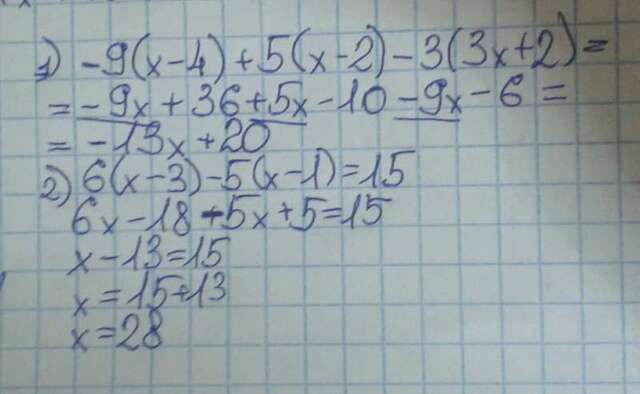 1) -9(x-4)+5(x-2)-3(3x+2)=
= -9x+36+5x-10-9x-6=
= -13x+20
2) 6(x-3)-5(x-1)=15
6x-18-5x+5=15
x-13=15
x=15+13
x=28